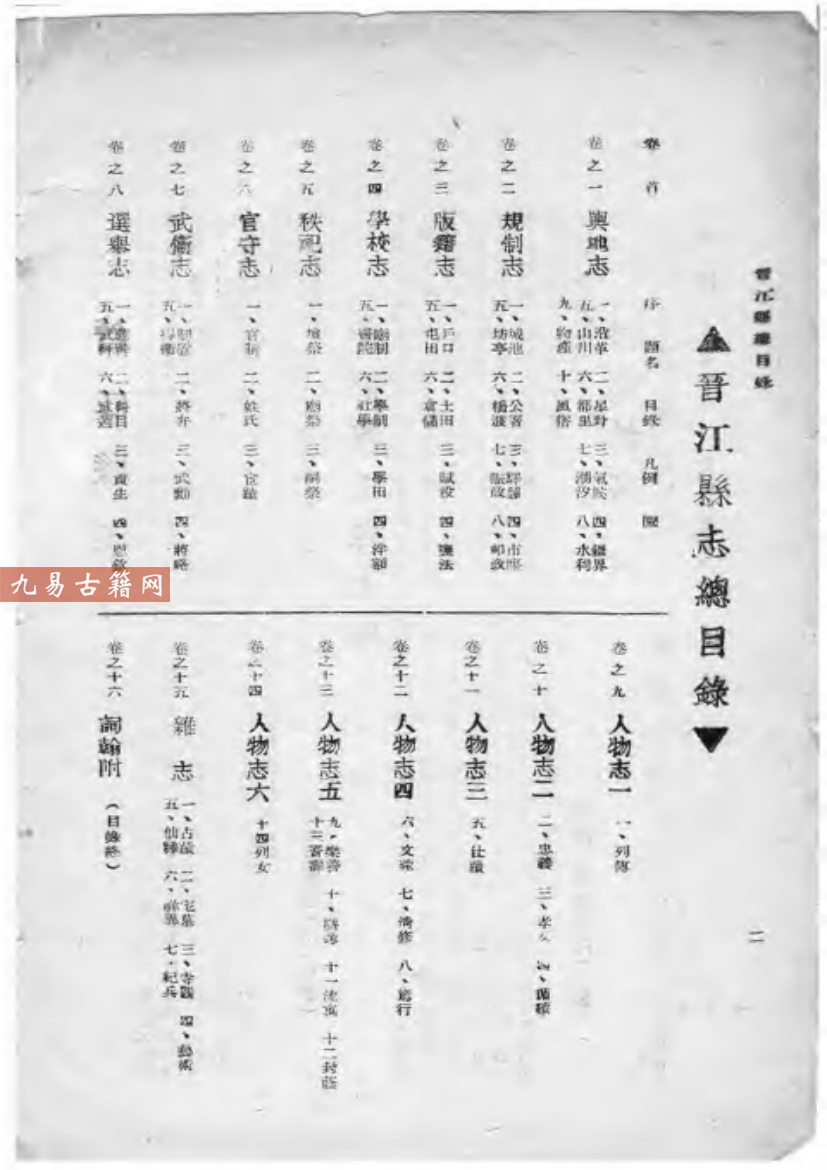 晉江縣總目錄
▲晉江縣志總目錄▼
卷首 序 題名 目錄 凡例 圖
卷之一 輿地志 一、沿革 二、星野 三、氣候 四、疆界
五、山川 六、都里 七、潮汐 八、水利
九、物產 十、風俗
卷之二 規制志 一、城池 二、公署 三、 四、市
五、坊亭 六、橋渡 七、賑政 八、郵政
卷之三 版籍志 一、戶口 二、土田 三、賦役 四、鹽法
五、屯田 六、倉儲
卷之四 學校志 一、廟制 二、學制 三、學田 四、泮額
五、書院 六、社學
卷之五 秩祀志 一、壇祭 二、廟祭 三、祠祭
卷之六 官守志 一、官制 二、姓氏 三、宦績
卷之七 武衞志 一、 二、將弁 三、武勳 四、將略
五、
卷之八 選舉志 一、 二、科目 三、貢生 四、恩敘
五、武科 六、
卷之九 人物志一 一、列傳
卷之十 人物志二 二、忠義 三、孝友 四、
卷之十一 人物志三 五、仕蹟
卷之十二 人物志四 六、文苑 七、清修 八、篤行
卷之十三 人物志五 九、樂善 十、隱逸 十一流寓 十二封蔭
十三耆壽
卷之十四 人物志六 十四列女
卷之十五 雜志 一、古蹟 二、宅墓 三、寺觀 四、藝術
五、仙釋 六、 七、紀兵
卷之十六 詞翰附 (目錄終)
二
九易古籍网